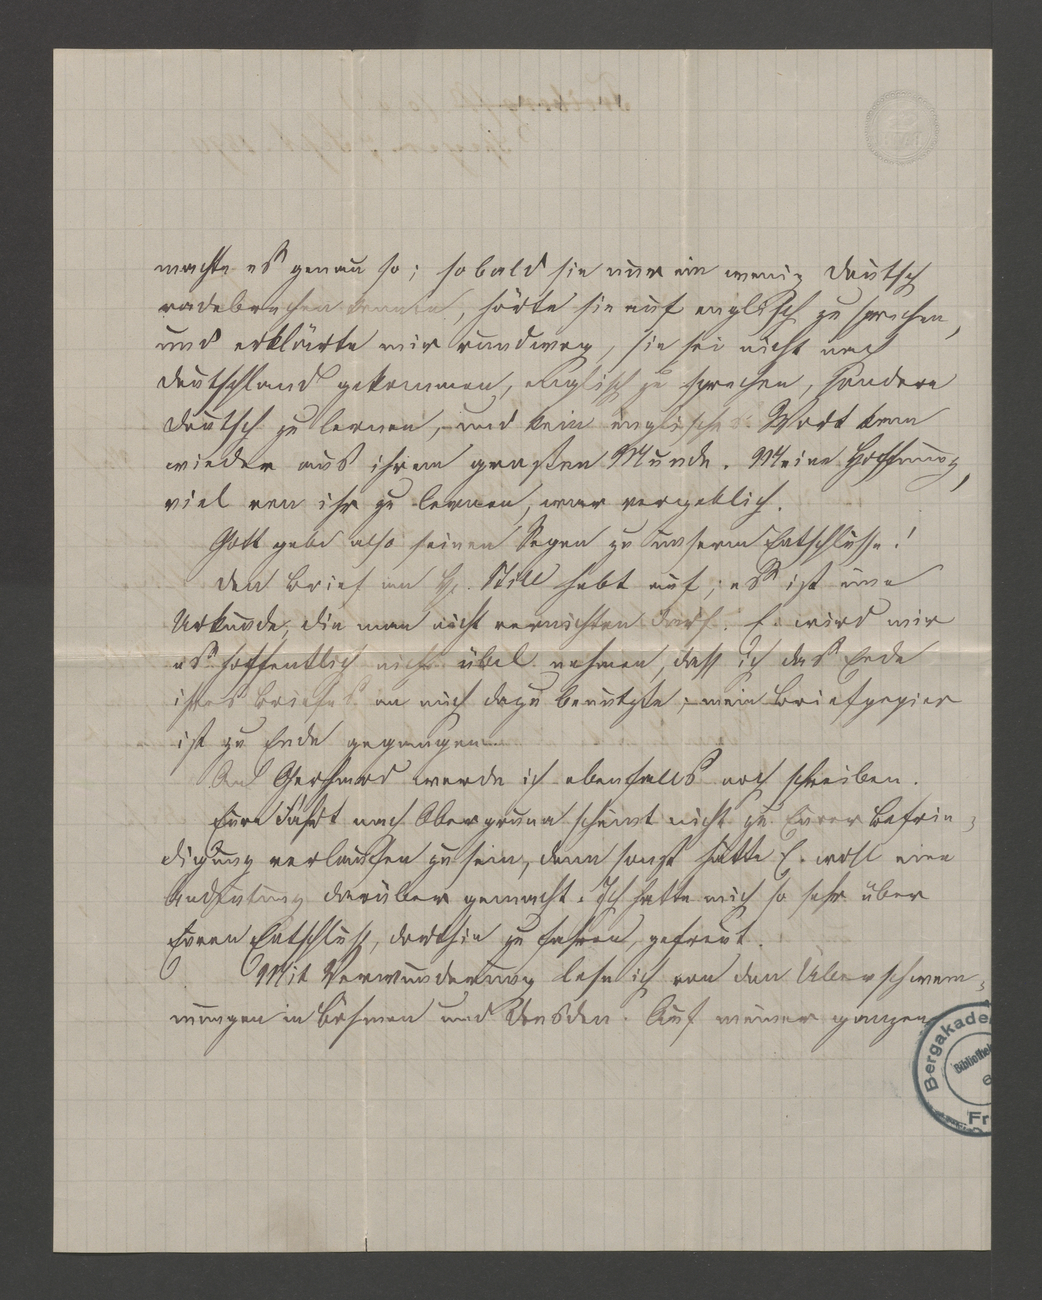 machte es genau so; sobald sie nur ein wenig deutsch
radebrechen konnte, hörte sie auf englisch zu sprechen,
und erklärte mir rundweg, sie sei nicht nach
Deutschland gekommen, englisch zu sprechen, sondern
deutsch zu lernen, und kein englisches Wort kam
wieder aus ihrem großen Munde. Meine Hoffnung,
viel von ihr zu lernen, war vergeblich.
Gott gebe also seinen Segen zu unserm Entschlusse!
Den Brief an H. Still hebt auf; es ist eine
Urkunde, die man nicht vernichten darf. E. wird mir
es hoffentlich nicht übel nehmen, dass ich das Ende
ihres Briefes an mich dazu benutzte; mein Briefpapier
ist zu Ende gegangen.
An Gerhard werde ich ebenfalls noch schreiben.
Eure Fahrt nach Obergruna scheint nicht zu Eurer Befrie-
digung verlaufen zu sein, denn sonst hätte E. wohl eine
Andeutung darüber gemacht. Ich hatte mich so sehr über
Euren Entschluß, dorthin zu fahren, gefreut.
Mit Verwunderung lese ich von den Überschwem-
mungen in Böhmen und Dresden. Auf meiner ganzen
Bergakade
Bibliothek
Fr